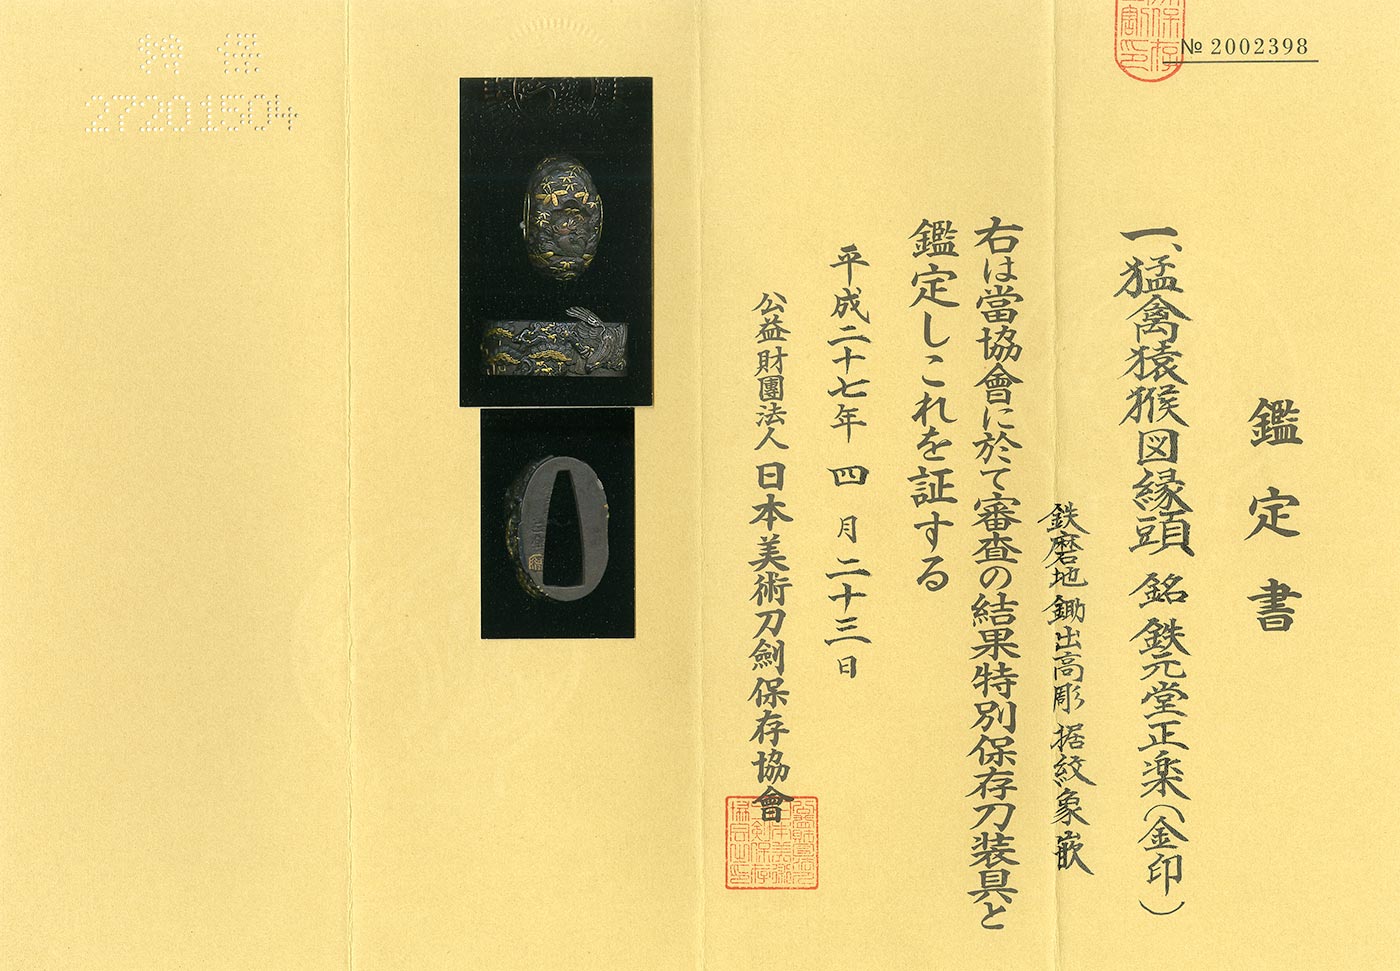 № 2002398
鑑定書
一、猛禽猿猴図縁頭 銘 鉄元堂正楽(金印)
鉄磨地 鋤出高彫 据紋象嵌
右は當協會に於て審査の結果特別保存刀装具と
鑑定しこれを証する
平成二十七年 四月二十三日
公益財團法人 日本美術刀劍保存協會
27201504